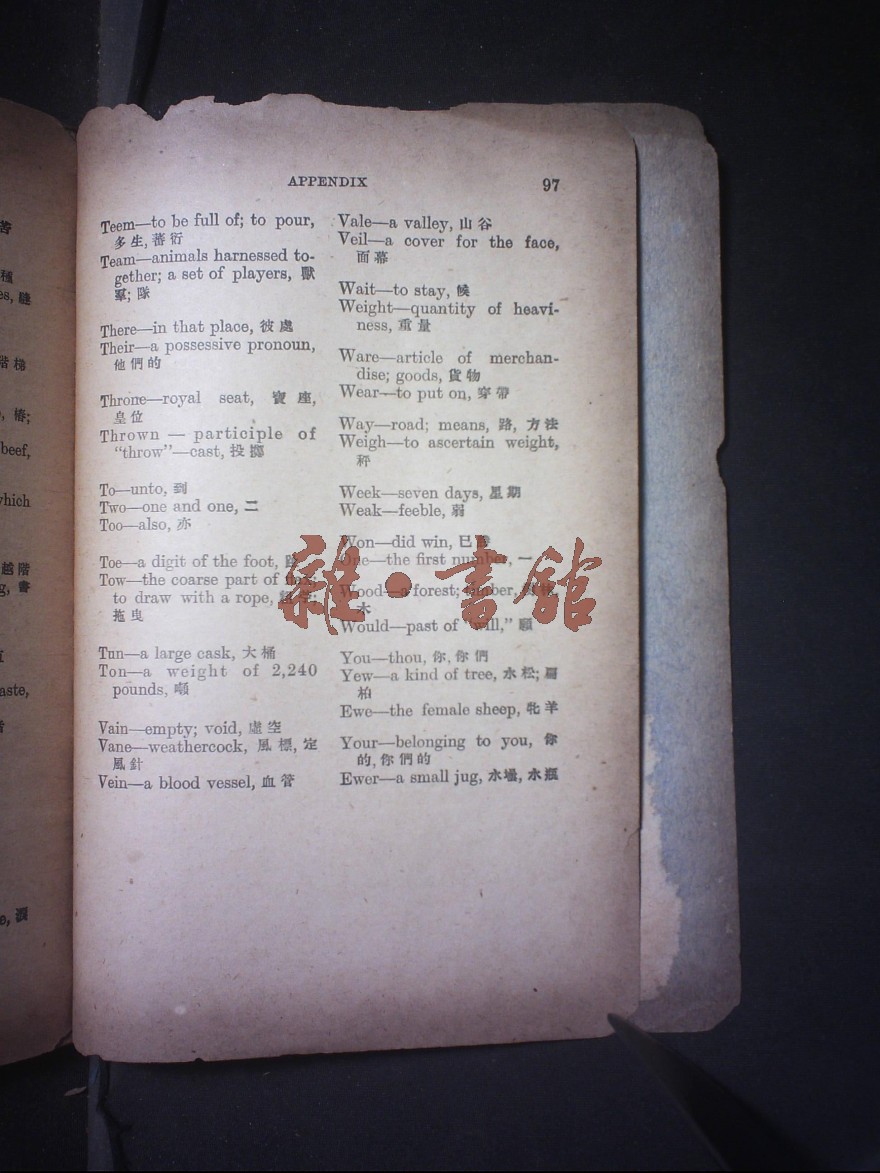 APPENDIX
97
Teem—to be full of; to pour,
多生, 蕃衍
Team—animals harnessed to-
gether; a set of players, 獸
羣; 隊
There—in that place, 彼處
Their—a possessive pronoun,
他們的
Throne—royal seat, 寶座,
皇位
Thrown — participle of
“throw”—cast, 投擲
To—unto, 到
Two—one and one, 二
Too—also, 亦
Toe—a digit of the foot,
Tow—the coarse part of flax;
to draw with a rope,
拖曳
Tun—a large cask, 大桶
Ton—a weight of 2,240
pounds, 噸
Vain—empty; void, 虛空
Vane—weathercock, 風標, 定
風針
Vein—a blood vessel, 血管
Vale—a valley, 山谷
Veil—a cover for the face,
面幕
Wait—to stay, 候
Weight—quantity of heavi-
ness, 重量
Ware—article of merchan-
dise; goods, 貨物
Wear—to put on, 穿帶
Way—road; means, 路, 方法
Weigh—to ascertain weight,
秤
Week—seven days, 星期
Weak—feeble, 弱
Won—did win, 已
One—the first number, 一
Wood—a forest; timber,
木
Would—past of “will,” 願
You—thou, 你, 你們
Yew—a kind of tree, 水松; 扁
柏
Ewe—the female sheep, 牝羊
Your—belonging to you, 你
的, 你們的
Ewer—a small jug, 水壜, 水瓶
雜·書館
beef,